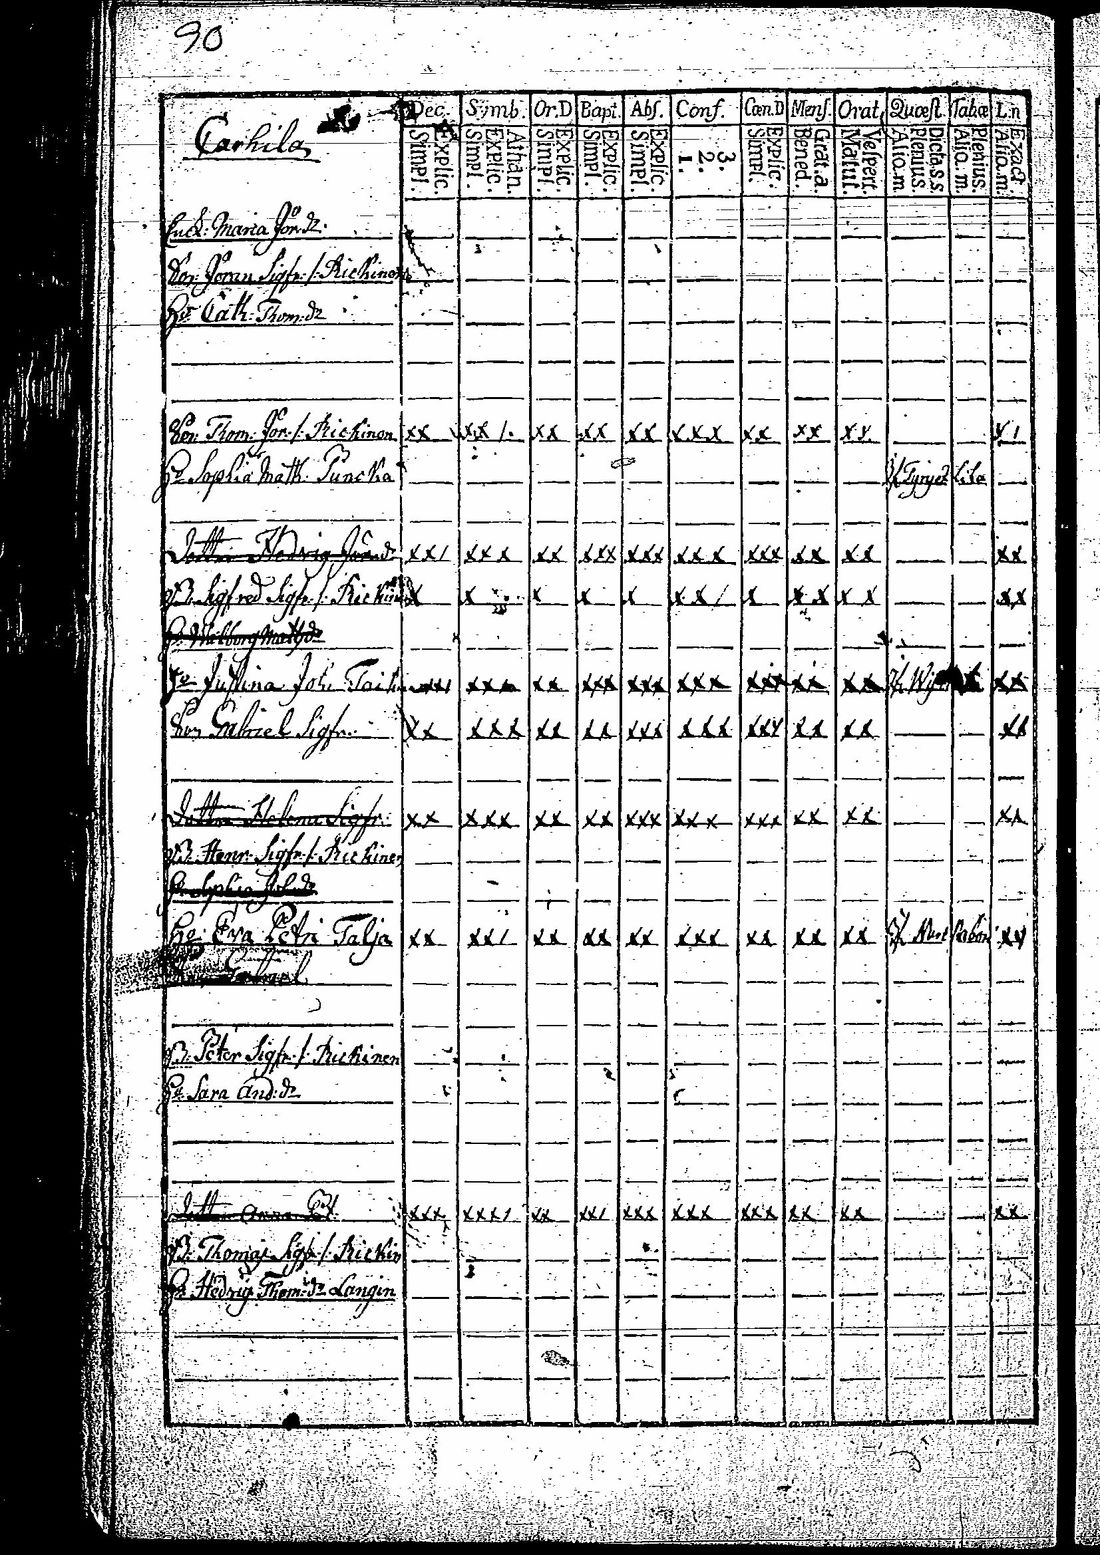 90
Carhila
Dec. Symb. Or.D Bapt. Abs. Conf. Cœn.D Mens. Orat. Quæst. Tabæ L.n
Explic. Simpl. Athan. Explic. Simpl. Explic. Simpl. Explic. Simpl. Explic. Simpl. 3. 2. 1. Explic. Simpl. Grat. a. Bened. Vespert. Matut. Dicta. s.s Plenius. Alio. m. Plenius. Alio. m. Exact Alio. m.
Maria Jör. dr.
Son Jöran Sigfr. /. Rickinen
Hu. Cath. Thom. dr
Son Thom. Jör. /. Rickinen xx xx /. xx xx xx xxx xx xx xx x /
Hu. Sophia Math. Puncka
Dotter Hedvig Jör. dr xx/ xxx xx xxx xxx xxx xxx xx xx xx
Br. Sigfred Sigfr. /. Rickinen x x x x x xx/ x xx xx xx
Hu. Walborg Math. dr
Hu. Justina Joh. xxx xx xxx xxx xxx xxx xx xx xx
Son Gabriel Sigfr. xx xxx xx xx xxx xxx xxx xx xx xx
Dotter Helena Sigfr. xx xxx xx xx xxx xxx xxx xx xx xx
Br. Henr. Sigfr. /. Rickinen
Hu. Sophia Joh. dr
Hu. Eva Petri Talja xx xx/ xx xx xx xxx xx xx xx xx
Br. Peter Sigfr. /. Rickinen
Hu. Sara And. dr
Dotter Anna Pet. xxx xxx/ xx xx/ xxx xxx xxx xx xx xx
Br. Thomas Sigfr. /. Rickin
Hu. Hedvig Thom. dr Langin